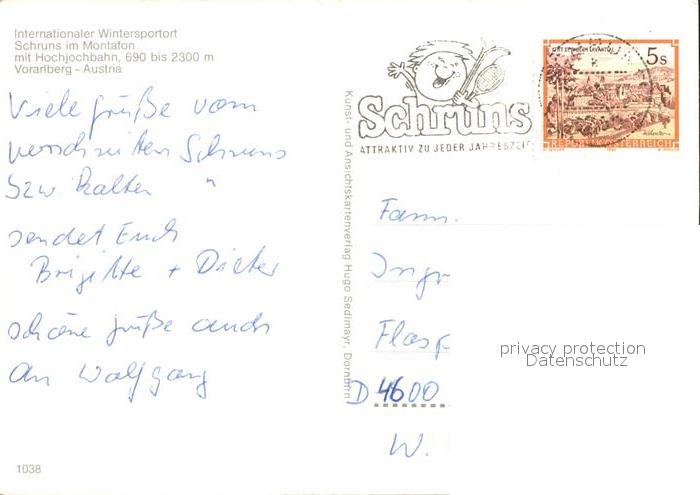 Internationaler Wintersportort
Schruns im Montafon
mit Hochjochbahn, 690 bis 2300 m
Vorarlberg – Austria
Viele Grüße vom
verschneiten Schruns
bzw. Kalten "
sendet Euch
Brigitte + Dieter
schöne Grüße auch
an Wolfgang
1038
Kunst- und Ansichtskartenverlag Hugo Sedlmayr, Dornbirn
Schruns
ATTRAKTIV ZU JEDER JAHRESZEIT
5s
REPUBLIK ÖSTERREICH
Fam.
D 4600
W.
privacy protection
Datenschutz